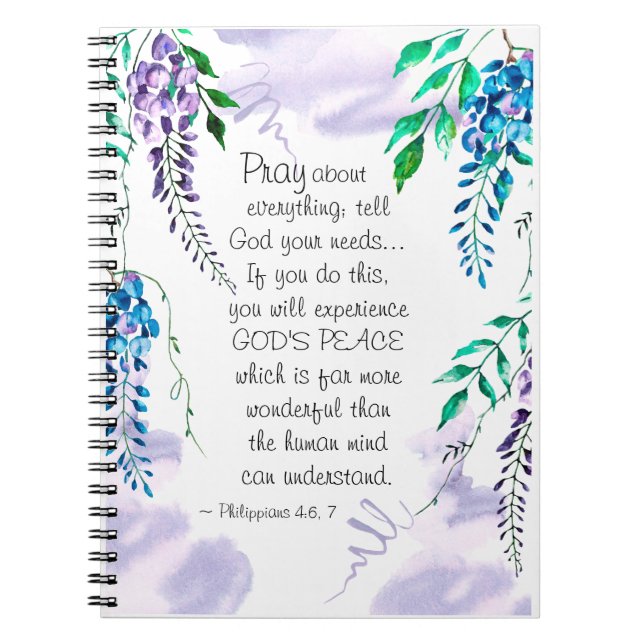 Pray about
everything; tell
God your needs...
If you do this,
you will experience
GOD'S PEACE
which is far more
wonderful than
the human mind
can understand.
~ Philippians 4:6, 7